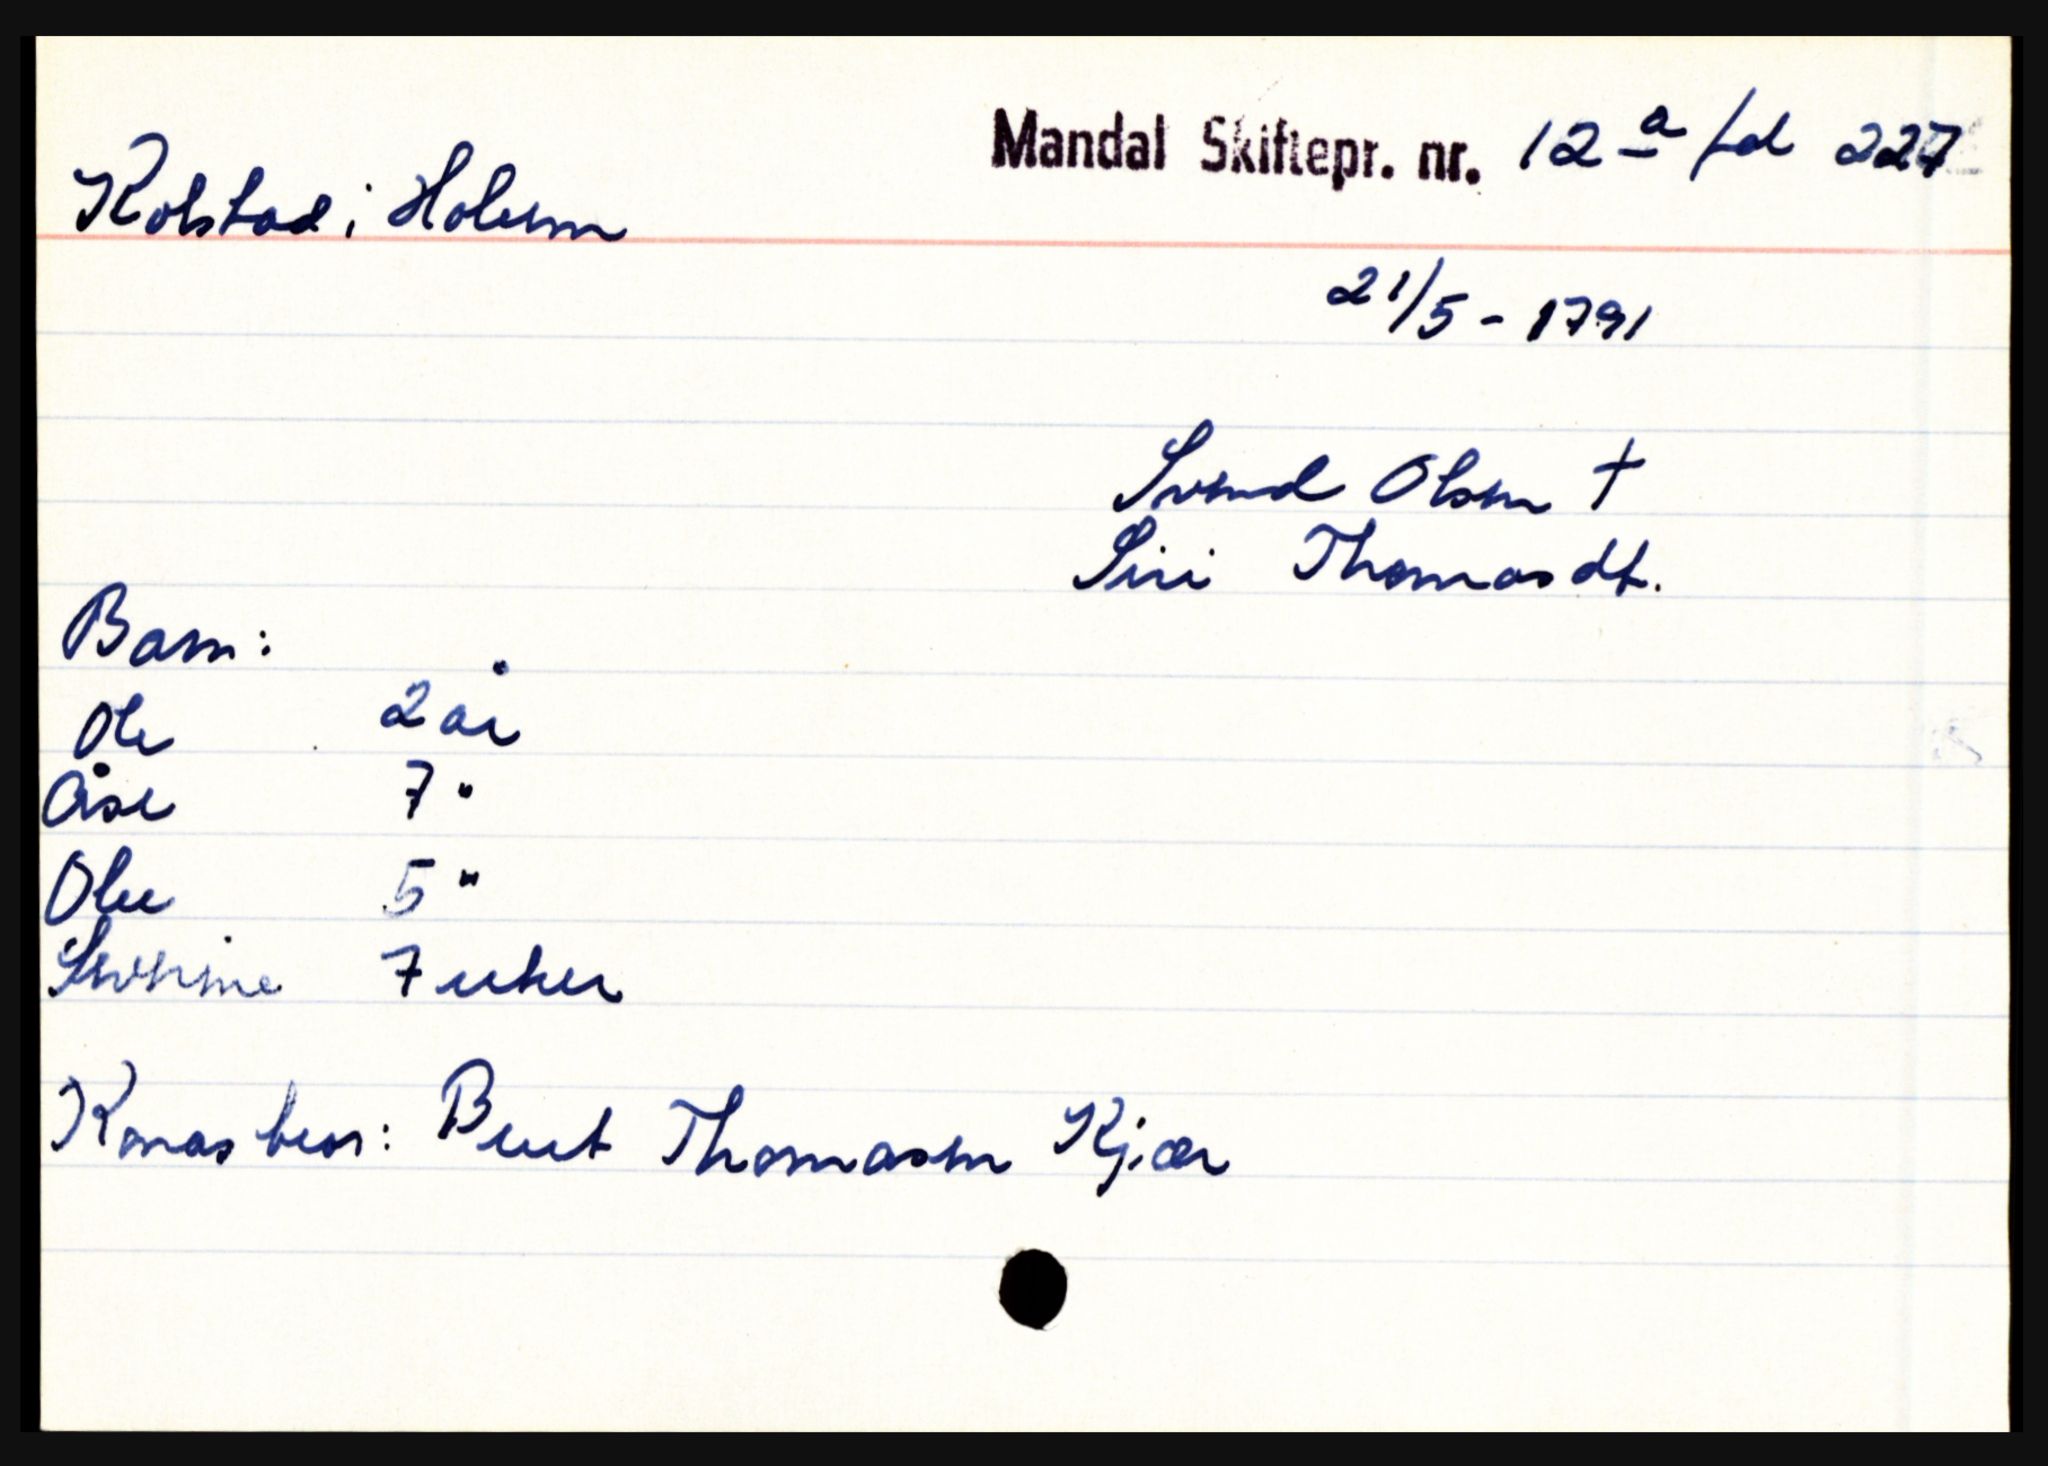 Mandal Skiftepr. nr. 12 a fol 227
Kolstad i Holum
21/5 - 1791
Svend Olsen †
Siri Thomasdt.
Barn:
Ole 2 år
Åse 7 "
Olee 5 "
Svenine 7 uker
Konas bror: Berit Thomasen Kjær